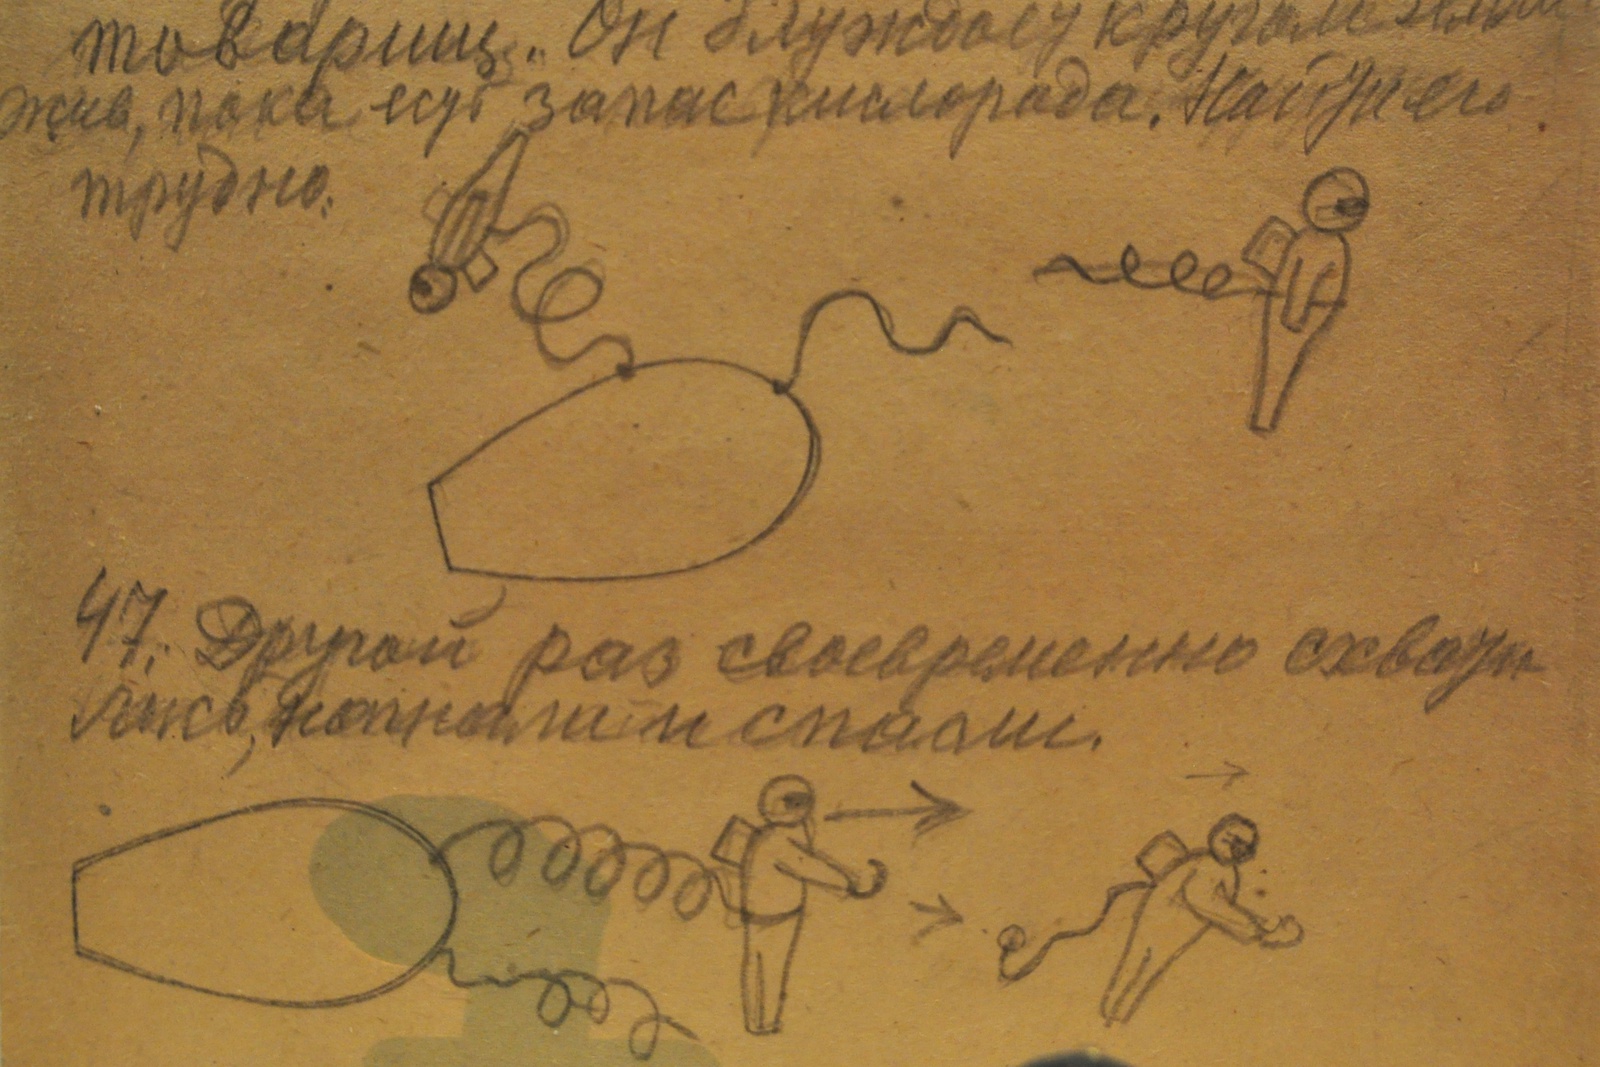 товарищ. Он блуждает кругом земли
жив, пока есть запас кислорода. Найти его
трудно.
47. Другой раз своевременно схвати-
лись, нагнали и спасли.